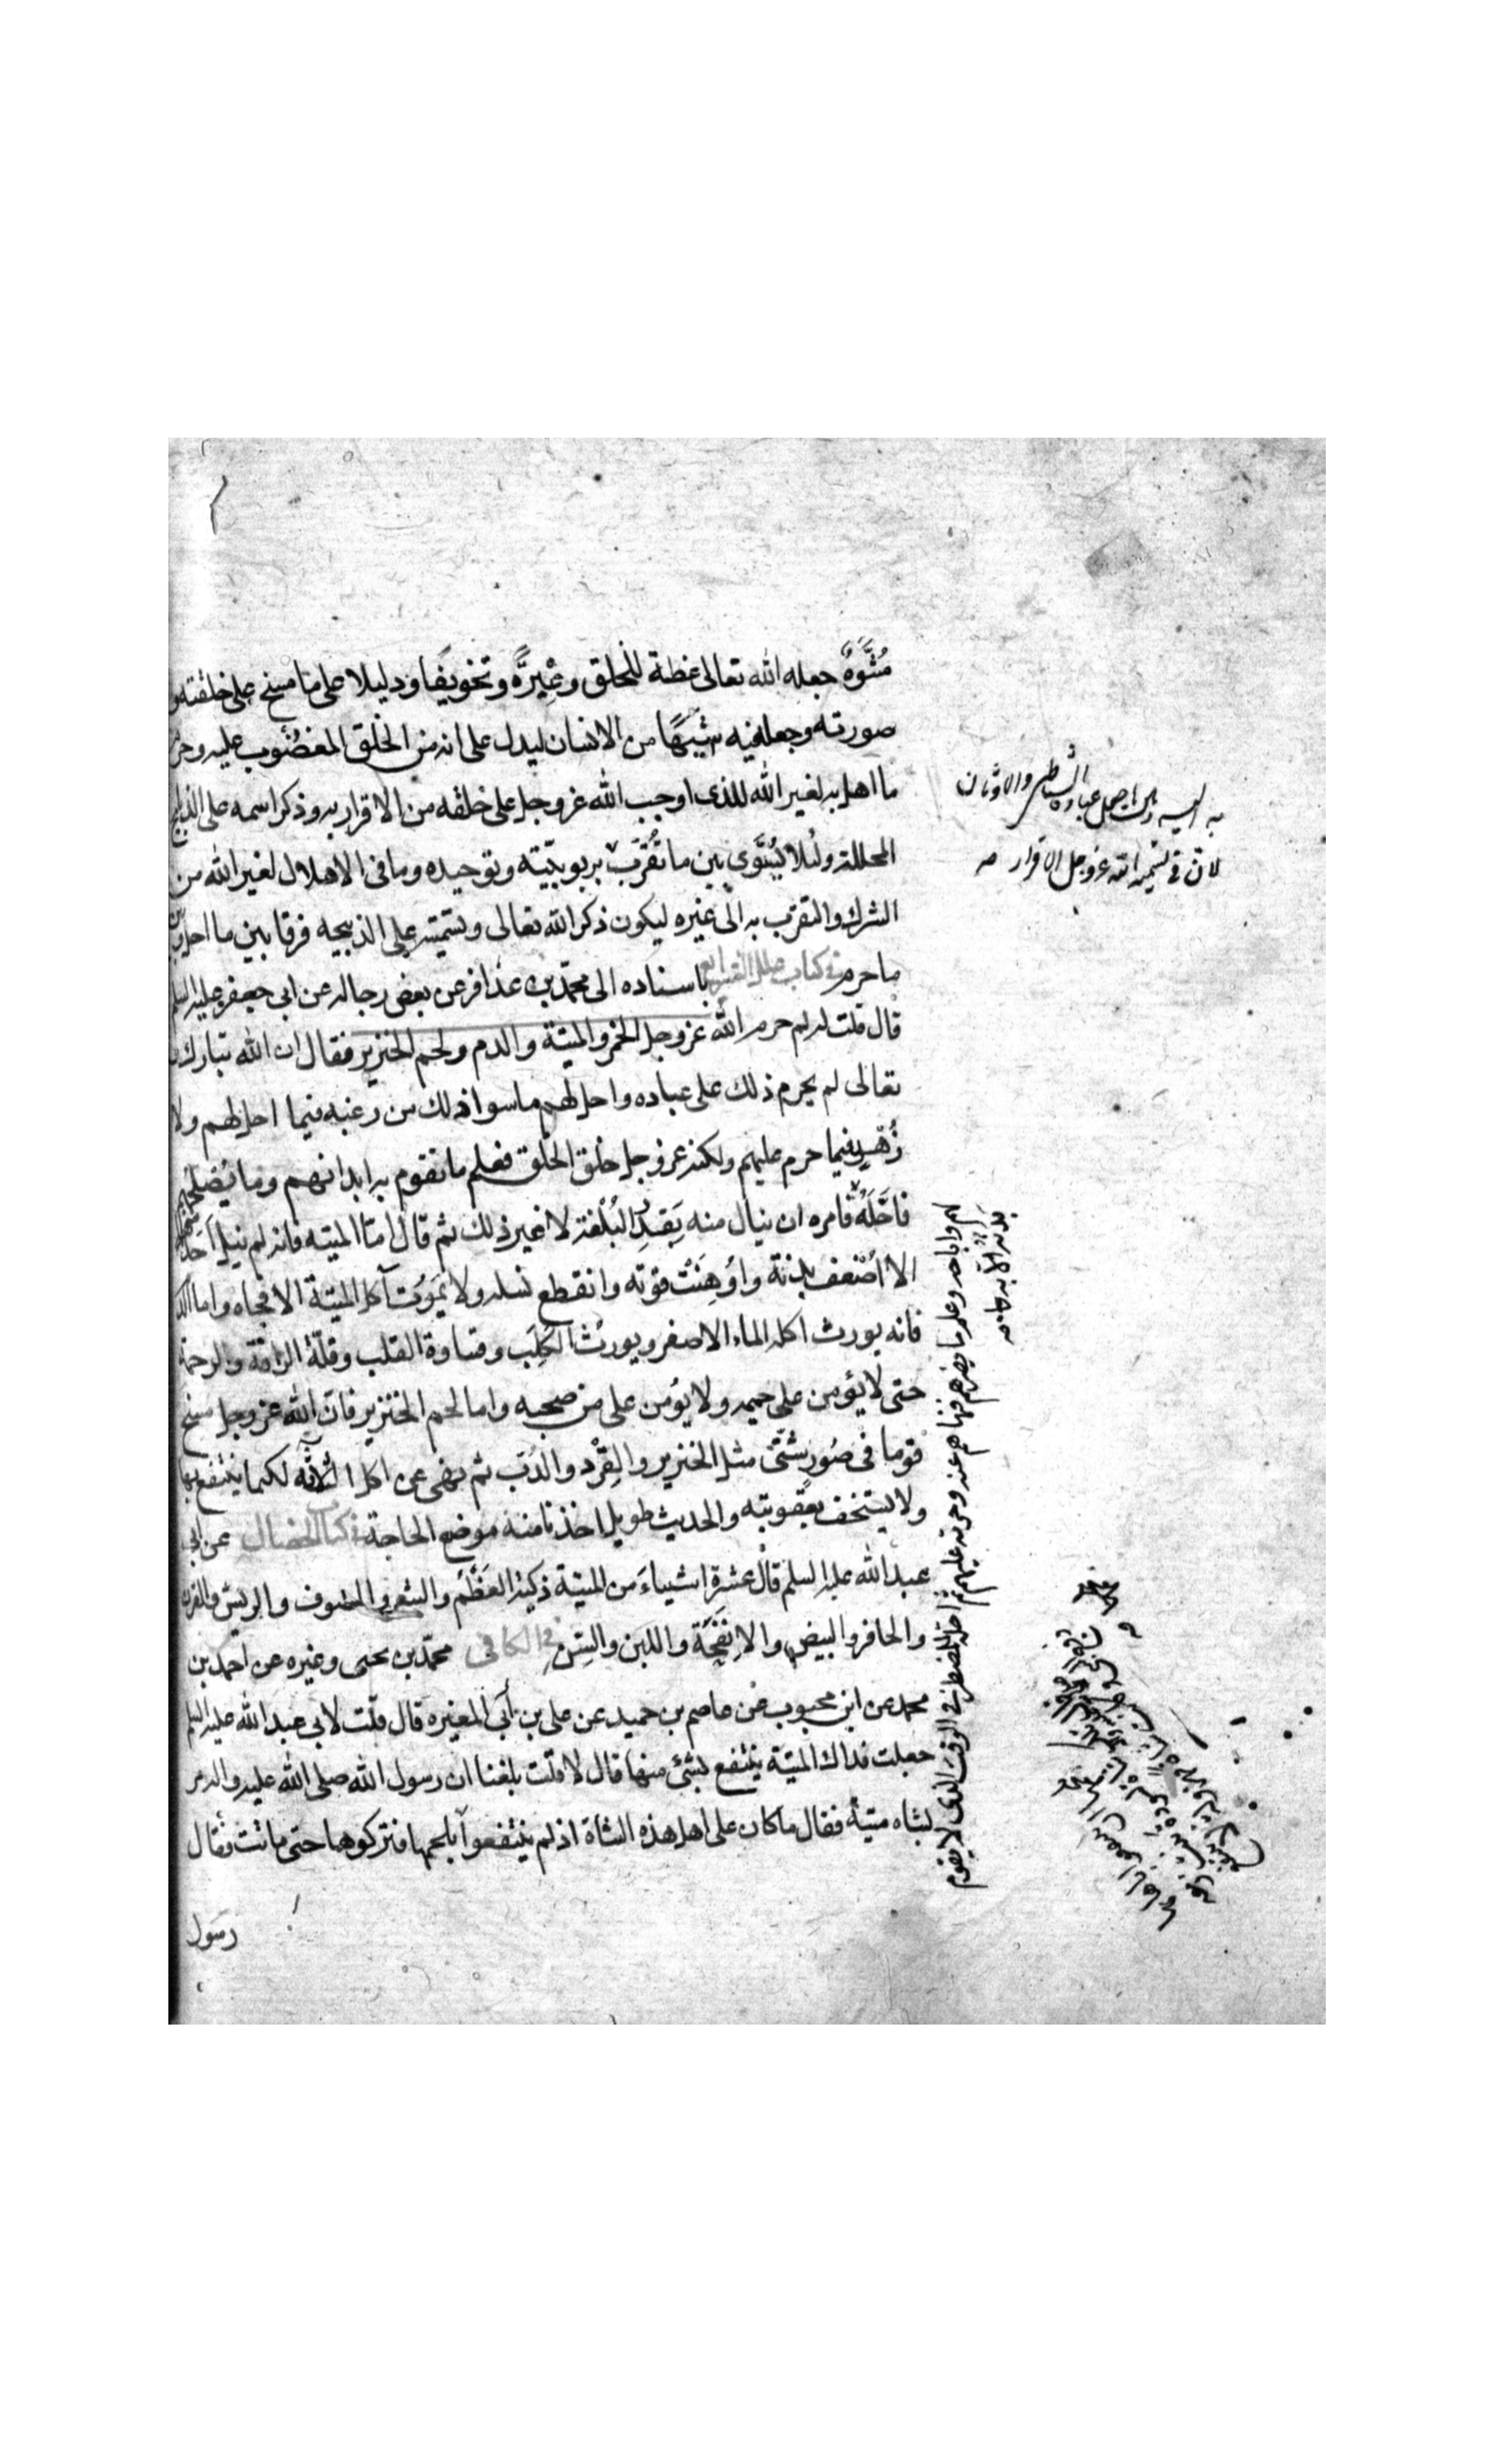 مُشَوَّهٌ جعله الله تعالى عظة للخلق وعِبْرَةً وتخويفًا ودليلا على ما مسخ على خلقته و
صورته وجعل فيه شَبَهًا من الانسان ليدل على انه من الخلق المغضُوب عليه وحرم
ما اهل به لغير الله للذى اوجب الله عز وجل على خلقه من الاقرار به وذكر اسمه على الذبايح
المحللة ولئلا يُسَوّى بين ما تُقُرِّبَ بربوبيّته وتوحيده وما فى الاهلال لغير الله من
الشرك والتقرّب به الى غيره ليكون ذكر الله تعالى وتسميته على الذبيحه فرقا بين ما احل وبين
ما حرم فى كتاب علل الشرايع باسناده الى محمّد بن عذافر عن بعض رجاله عن ابى جعفر عليه السلم
قال قلت له لم حرم الله عز وجل الخمر والميتة والدم ولحم الخنزير فقال ان الله تبارك و
تعالى لم يحرم ذلك على عباده واحل لهم ما سوا ذلك من رغبه فيما احل لهم ولا
زُهْدٍ فيما حرم عليهم ولكنه عز وجل خلق الخلق فعلم ما تقوم به ابدانهم وما يُصلحهم
فاحَلَّهُ فامره ان ينال منه بِقَدرِ البُلْغة لا غير ذلك ثم قال امّا الميتة فانه لم ينل احد منها
الا ضعف بدنة واوُهِنَتْ قوّته وانقطع نسله ولا يَمُوت آكل الميتة الا فجاه واما الدم
فانه يورث اكله الماء الاصفر ويورثُ الكَلَب وقساوة القلب وقلّة الرافة والرحمة
حتى لا يؤمن على حميمه ولا يؤمن على من صحبه واما لحم الخنزير فان الله عز وجل مسخ
قوما فى صُوَرٍ شتّى مثل الخنزير والقِرْد والدّب ثم نهى عن اكل الثلاثة لكيما ينتفع بها
ولا يستخف بعقوبته والحديث طويل اخذنا منه موضع الحاجة فى كتاب الخصال عن ابى
عبد الله عليه السلم قال عشرة اشياءَ من الميتة ذكية العَظْمُ والشعر والصّوف والريش والقرن
والحافر والبيض والانفِحَة واللبن والسِّن فى الكافى محمّد بن يحيى وغيره عن احمد بن
محمد عن ابن محبوب عن عاصم بن حميد عن على بن أبى المغيره قال قلت لابى عبد الله عليه السلم
جعلت فداك الميتة ينتفع بشئ منها قال لا قلت بلغنا ان رسول الله صلى الله عليه وآله مر
بشاه ميتة فقال ما كان على اهل هذه الشاة اذ لم ينتفعوا بلحمها فتركوها حتى ماتت فقال
رسول
عبادة الشياطين والاوثان
لان فى تسمية الله عز وجل الاقرار
لهم واباحه وعلم ما يضرهم فنهاهم عنه وحرمه عليهم ثم احله للمضطر فى الوقت الذى لا يقوم
بدنه الا به